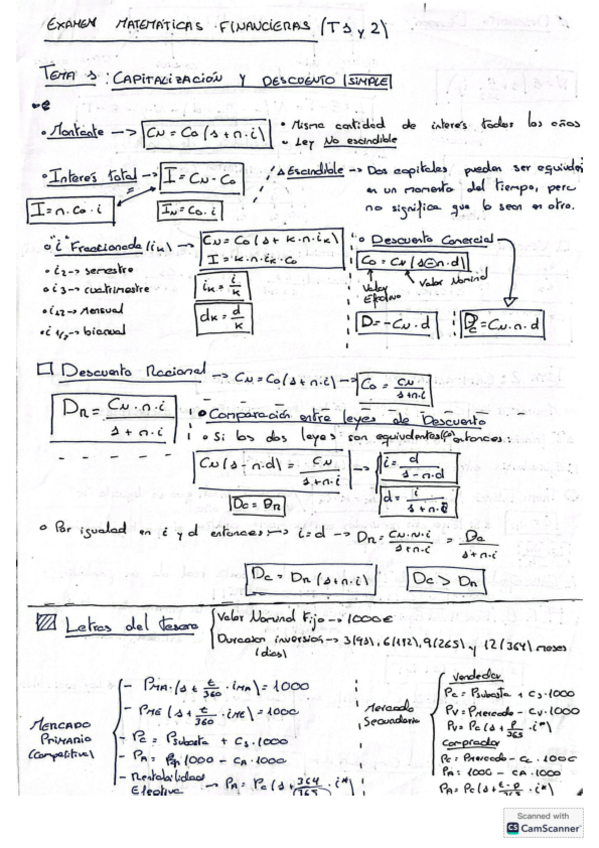 EXAMEN MATEMÁTICAS FINANCIERAS (T1 y 2)
TEMA 1: CAPITALIZACIÓN Y DESCUENTO SIMPLE
• Montante → Cn = Co (1 + n·i)
• Misma cantidad de interés todos los años
- Ley No escindible
• Interés Total → I = Cn - Co
I = n·Co·i
In = Co·i
Escindible → Dos capitales pueden ser equivalen
en un momento del tiempo, pero
no significa que lo sean en otro.
• "i" Fraccionada (ik) → Cn = Co (1 + k·n·ik)
I = k·n·ik·Co
• i2 → semestre
• i3 → cuatrimestre
• i12 → Mensual
• i 1/2 → bianual
ik = i/k
dk = d/k
• Descuento Comercial
Co = Cn (1 - n·d)
Valor Efectivo
Valor Nominal
D = - Cn·d
Dc = Cn·n·d
Descuento Racional → Cn = Co (1 + n·i) → Co = Cn / 1 + n·i
Dr = Cn·n·i / 1 + n·i
• Comparación entre leyes de Descuento
• Si las dos leyes son equivalentes (Co) entonces:
Cn (1 - n·d) = Cn / 1 + n·i → i = d / 1 - n·d
d = i / 1 + n·i
Dc = Dr
• Por igualdad en i y d entonces → i = d → Dr = Cn·n·i / 1 + n·i = Dc / 1 + n·i
Dc = Dr (1 + n·i)
Dc > Dr
Letras del tesoro
Valor Nominal Fijo → 1000€
Duración inversión → 3(93), 6(182), 9(265) y 12(364) meses
(días)
MERCADO
PRIMARIO
(Competitiva)
- PMA·(1 + t/360·iMA) = 1000
- PME (1 + t/360·iME) = 1000
- Pc = Psubasta + Cs·1000
- PA = 1000 - CA·1000
- Rentabilidad
Efectiva → PA = Pc (1 + 364/365·i*)
Mercado
Secundario
Vendedor
Pc = Psubasta + Cs·1000
Pv = Pmercado - Cv·1000
Pv = Pc (1 + P/365·i*)
Comprador
Pc = Pmercado - Cc·1000
PA = 1000 - CA·1000
PA = Pc (1 + t-p
Scanned with
CS CamScanner